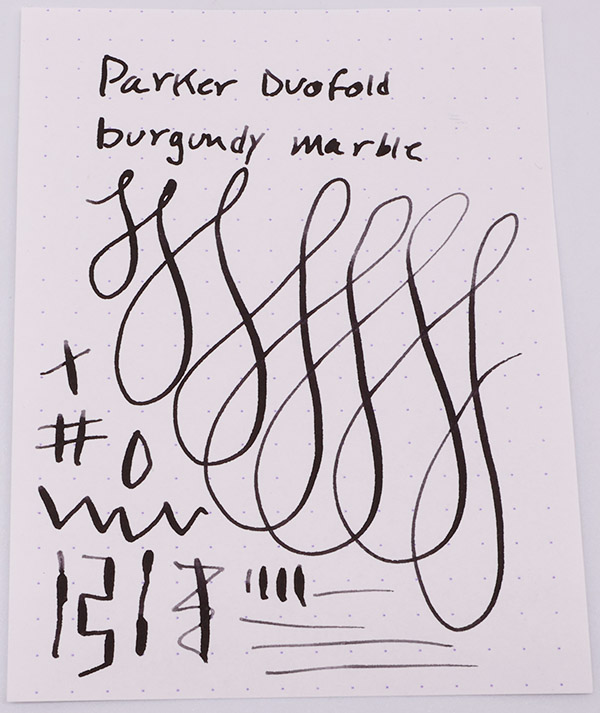 Parker Duofold
burgundy marble